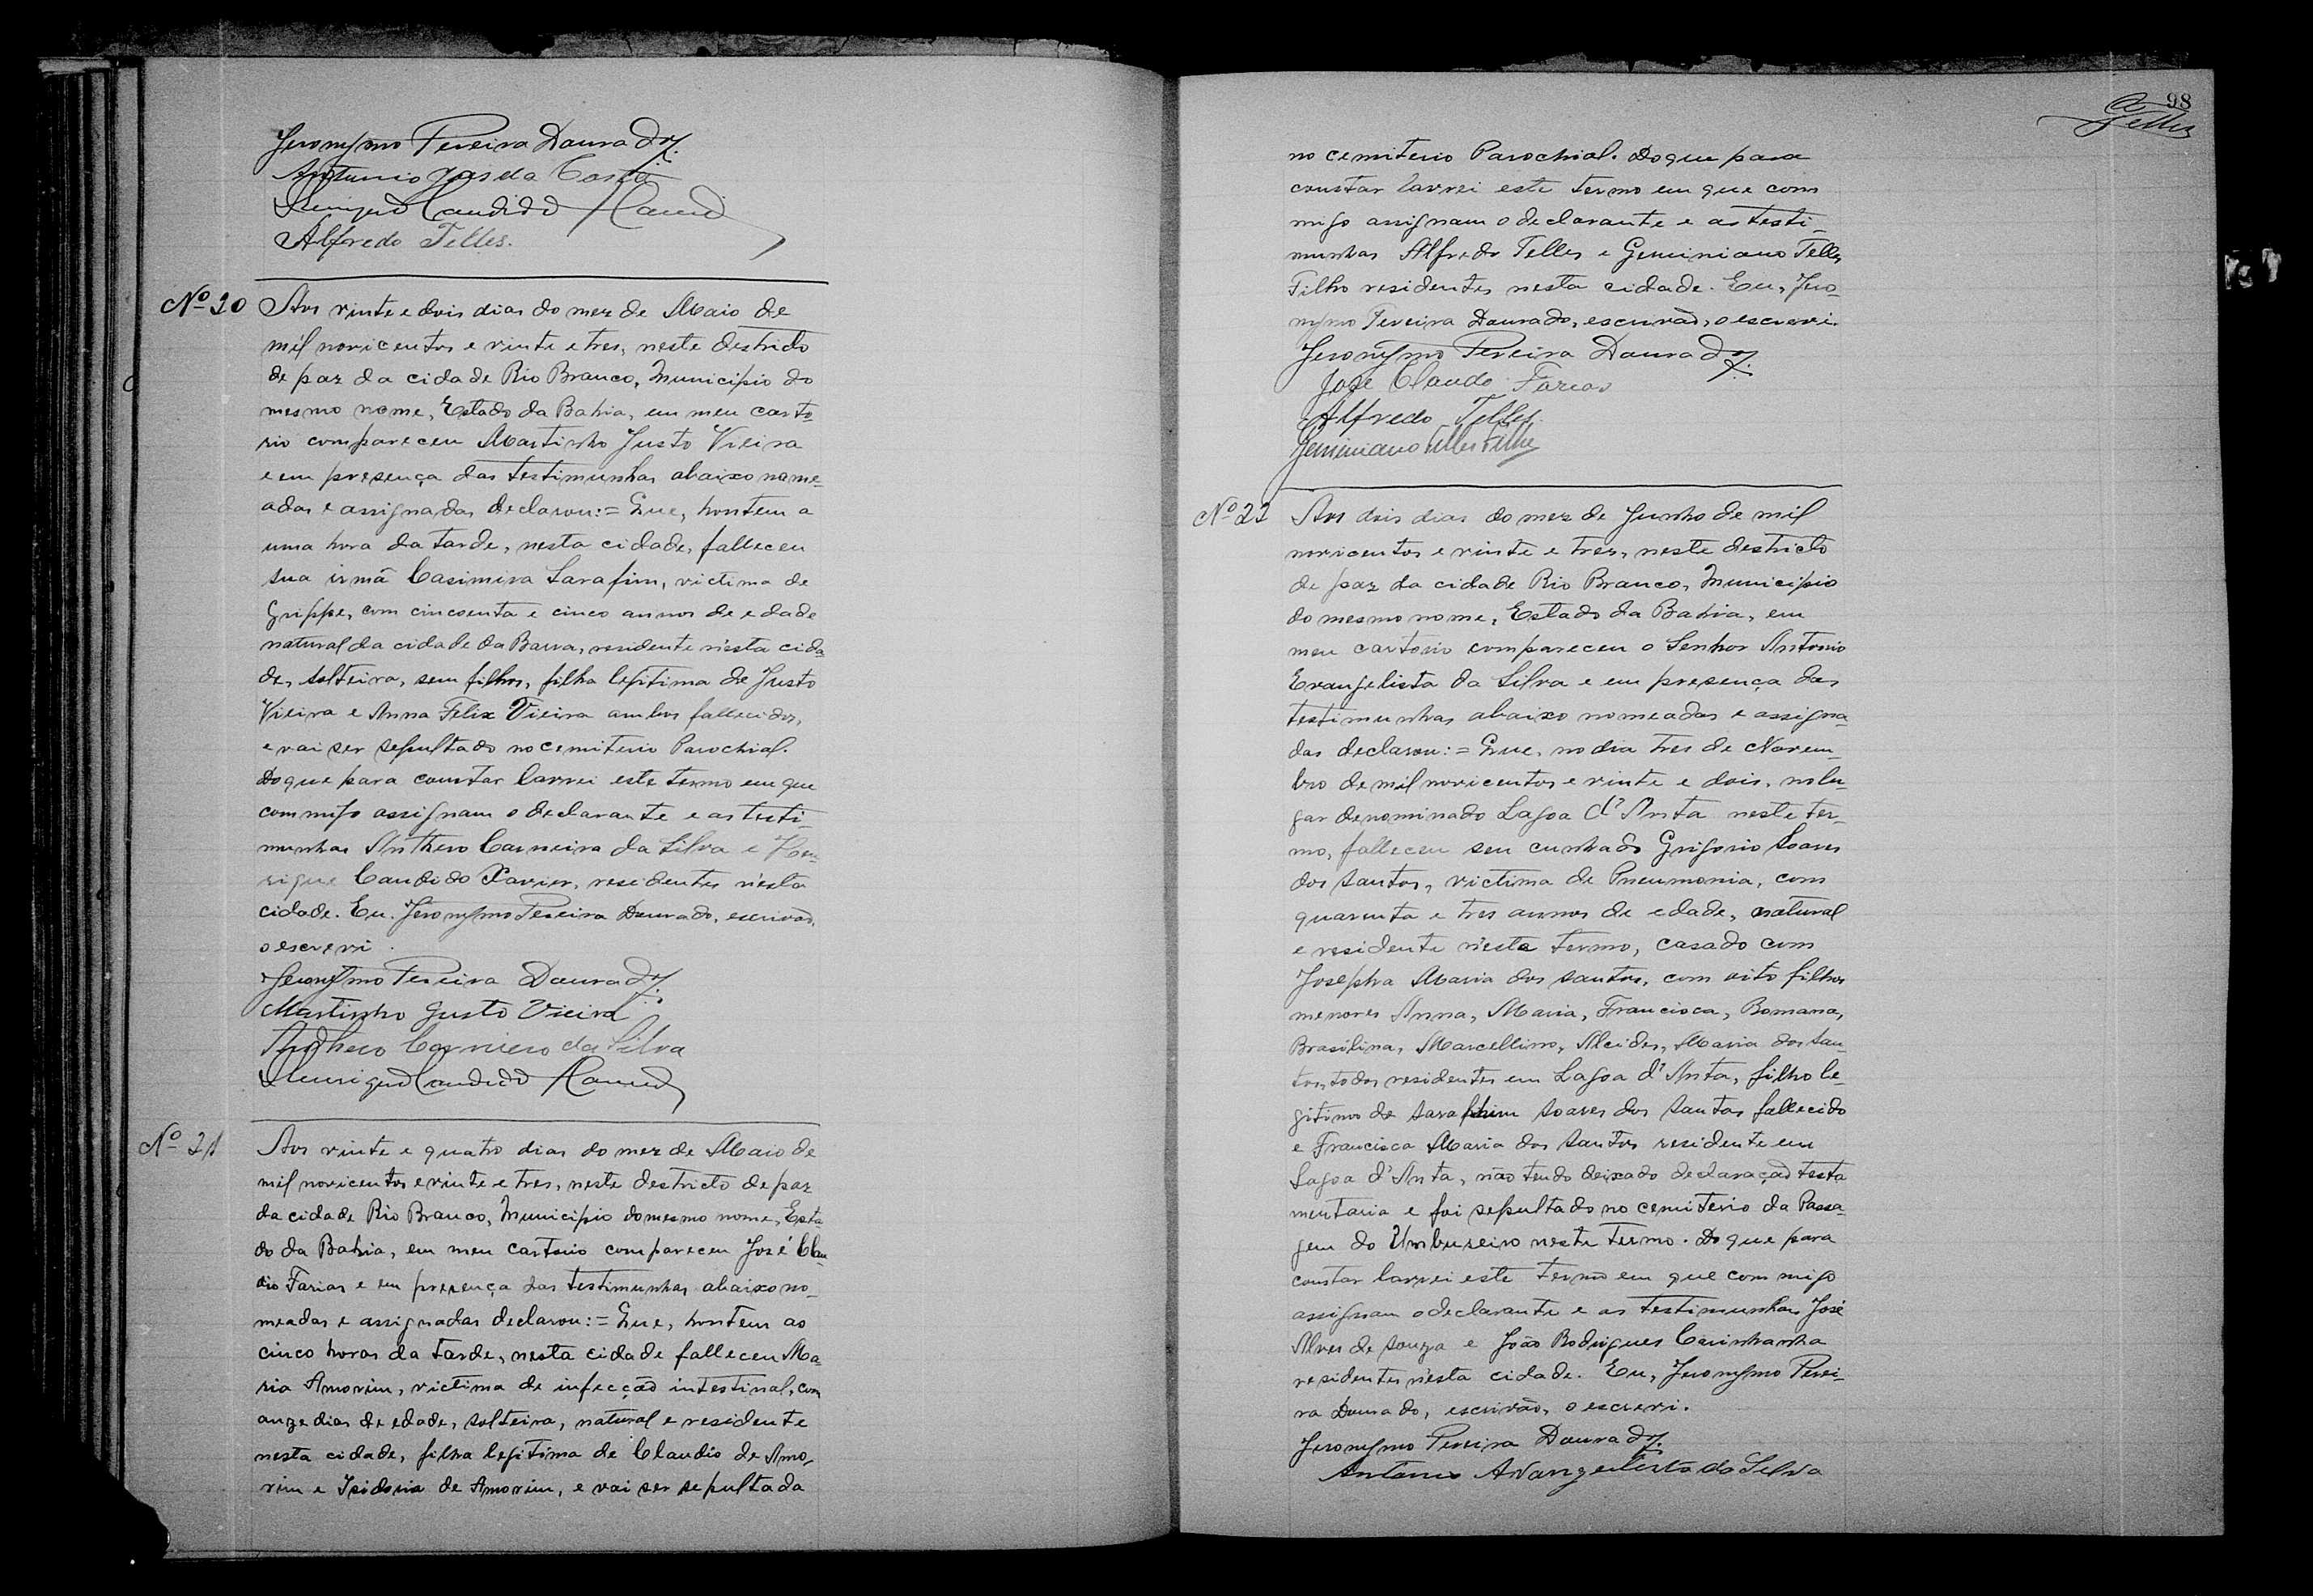 Jeronymo Pereira Dourado.
Antonio Jos da Costa
Henrique Candido
Alfredo Telles.
Nº 20 Aos vinte e dois dias do mez de Maio de
mil novicentos e vinte e tres, neste destricto
de paz da cidade Rio Branco, Municipio do
mesmo nome, Estado da Bahia, em meu carto-
rio compareceu Martinho Justo Vieira
e em presença das testimunhas abaixo nome-
adas e assignadas declarou:= Que, hontem a
uma hora da tarde, nesta cidade, falleceu
sua irmã Casimira Sarafim, victima de
Grippe, com cincoenta e cinco annos de edade
natural da cidade da Barra, residente n'esta cida-
de, solteira, sem filhos, filha legitima de Justo
Vieira e Anna Felix Vieira ambos fallecidos,
e vai ser sepultado no cemiterio Parochial.
Do que para constar lavrei este termo em que
commigo assignam o declarante e as testi-
munhas Anthero Carneiro da Silva e Hen-
rique Candido Xavier, residentes n'esta
cidade. Eu. Jeronymo Pereira Dourado, escrivão,
o escrevi.
Jeronymo Pereira Dourado.
Martinho Justo Vieira
Anthero Carneiro da Silva
Henrique Candido
Nº 21 Aos vinte e quatro dias do mez de Maio de
mil novicentos e vinte e tres, neste destricto de paz
da cidade Rio Branco, Municipio do mesmo nome, Esta-
do da Bahia, em meu cartorio compareceu José Clau-
dio Farias e em presença das testimunhas abaixo no-
meadas e assignadas declarou:= Que, hontem as
cinco horas da tarde, nesta cidade falleceu Ma-
ria Amorim, victima de infecção intestinal, com
onze dias de edade, solteira, natural e residente
nesta cidade, filha legitima de Claudio de Amo-
rim e Isidoria de Amorim, e vai ser sepultada
98
Telles
no cemiterio Parochial. Do que para
constar lavrei este termo em que com
migo assignam o declarante e as testi-
munhas Alfredo Telles e Geminiano Telles
Filho residentes nesta cidade. Eu, Jero-
nymo Pereira Dourado, escrivão, o escrevi.
Jeronymo Pereira Dourado.
José Claudo Farias
Alfredo Telles.
Geminiano Telles Filho
Nº 22 Aos dois dias do mez de Junho de mil
novicentos e vinte e tres, neste destricto
de paz da cidade Rio Branco, Municipio
do mesmo nome, Estado da Bahia, em
meu cartorio compareceu o Senhor Antonio
Evangelista da Silva e em presença das
testimunhas abaixo nomeadas e assigna-
das declarou:= Que, no dia tres de Novem-
bro de mil novicentos e vinte e dois, no lu-
gar denominado Lagoa d'Anta neste ter-
mo, falleceu seu cunhado Grigorio Soares
dos Santos, victima de Pneumonia, com
quarenta e tres annos de edade, natural
e residente n'esta termo, casado com
Josepha Maria dos Santos, com oito filhos
menores Anna, Maria, Francisca, Romana,
Brasilina, Marcellino, Alcides, Maria dos San-
tos, todos residentes em Lagoa d'Anta, filho le-
gitimo de Saraphim Soares dos Santos fallecido
e Francisca Maria dos Santos residente em
Lagoa d'Anta, não tendo deixado declaração testa
mentaria e foi sepultado no cemiterio da Passa-
gem do Umbuzeiro neste termo. Do que para
constar lavrei este termo em que com migo
assignam o declarante e as testimunhas José
Alves de Souza e João Rodrigues Carinhanha
residentes n'esta cidade. Eu, Jeronymo Perei-
ra Dourado, escrivão, o escrevi.
Jeronymo Pereira Dourado.
Antonio Avangelista da Silva